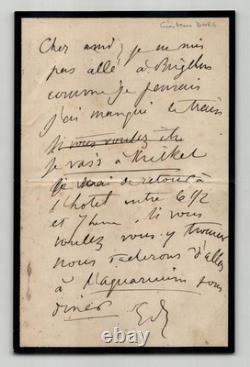 Gustave Doré
Cher ami, je ne suis
pas allé à Brighton
comme je pensais
j'ai manqué le train
Si vous voulez être
je vais à
je serai de retour à
l'hotel entre 6 1/2
et 7 heures. Si vous
voulez vous y trouver
nous tacherons d'aller
à l'aquarium pour
diner